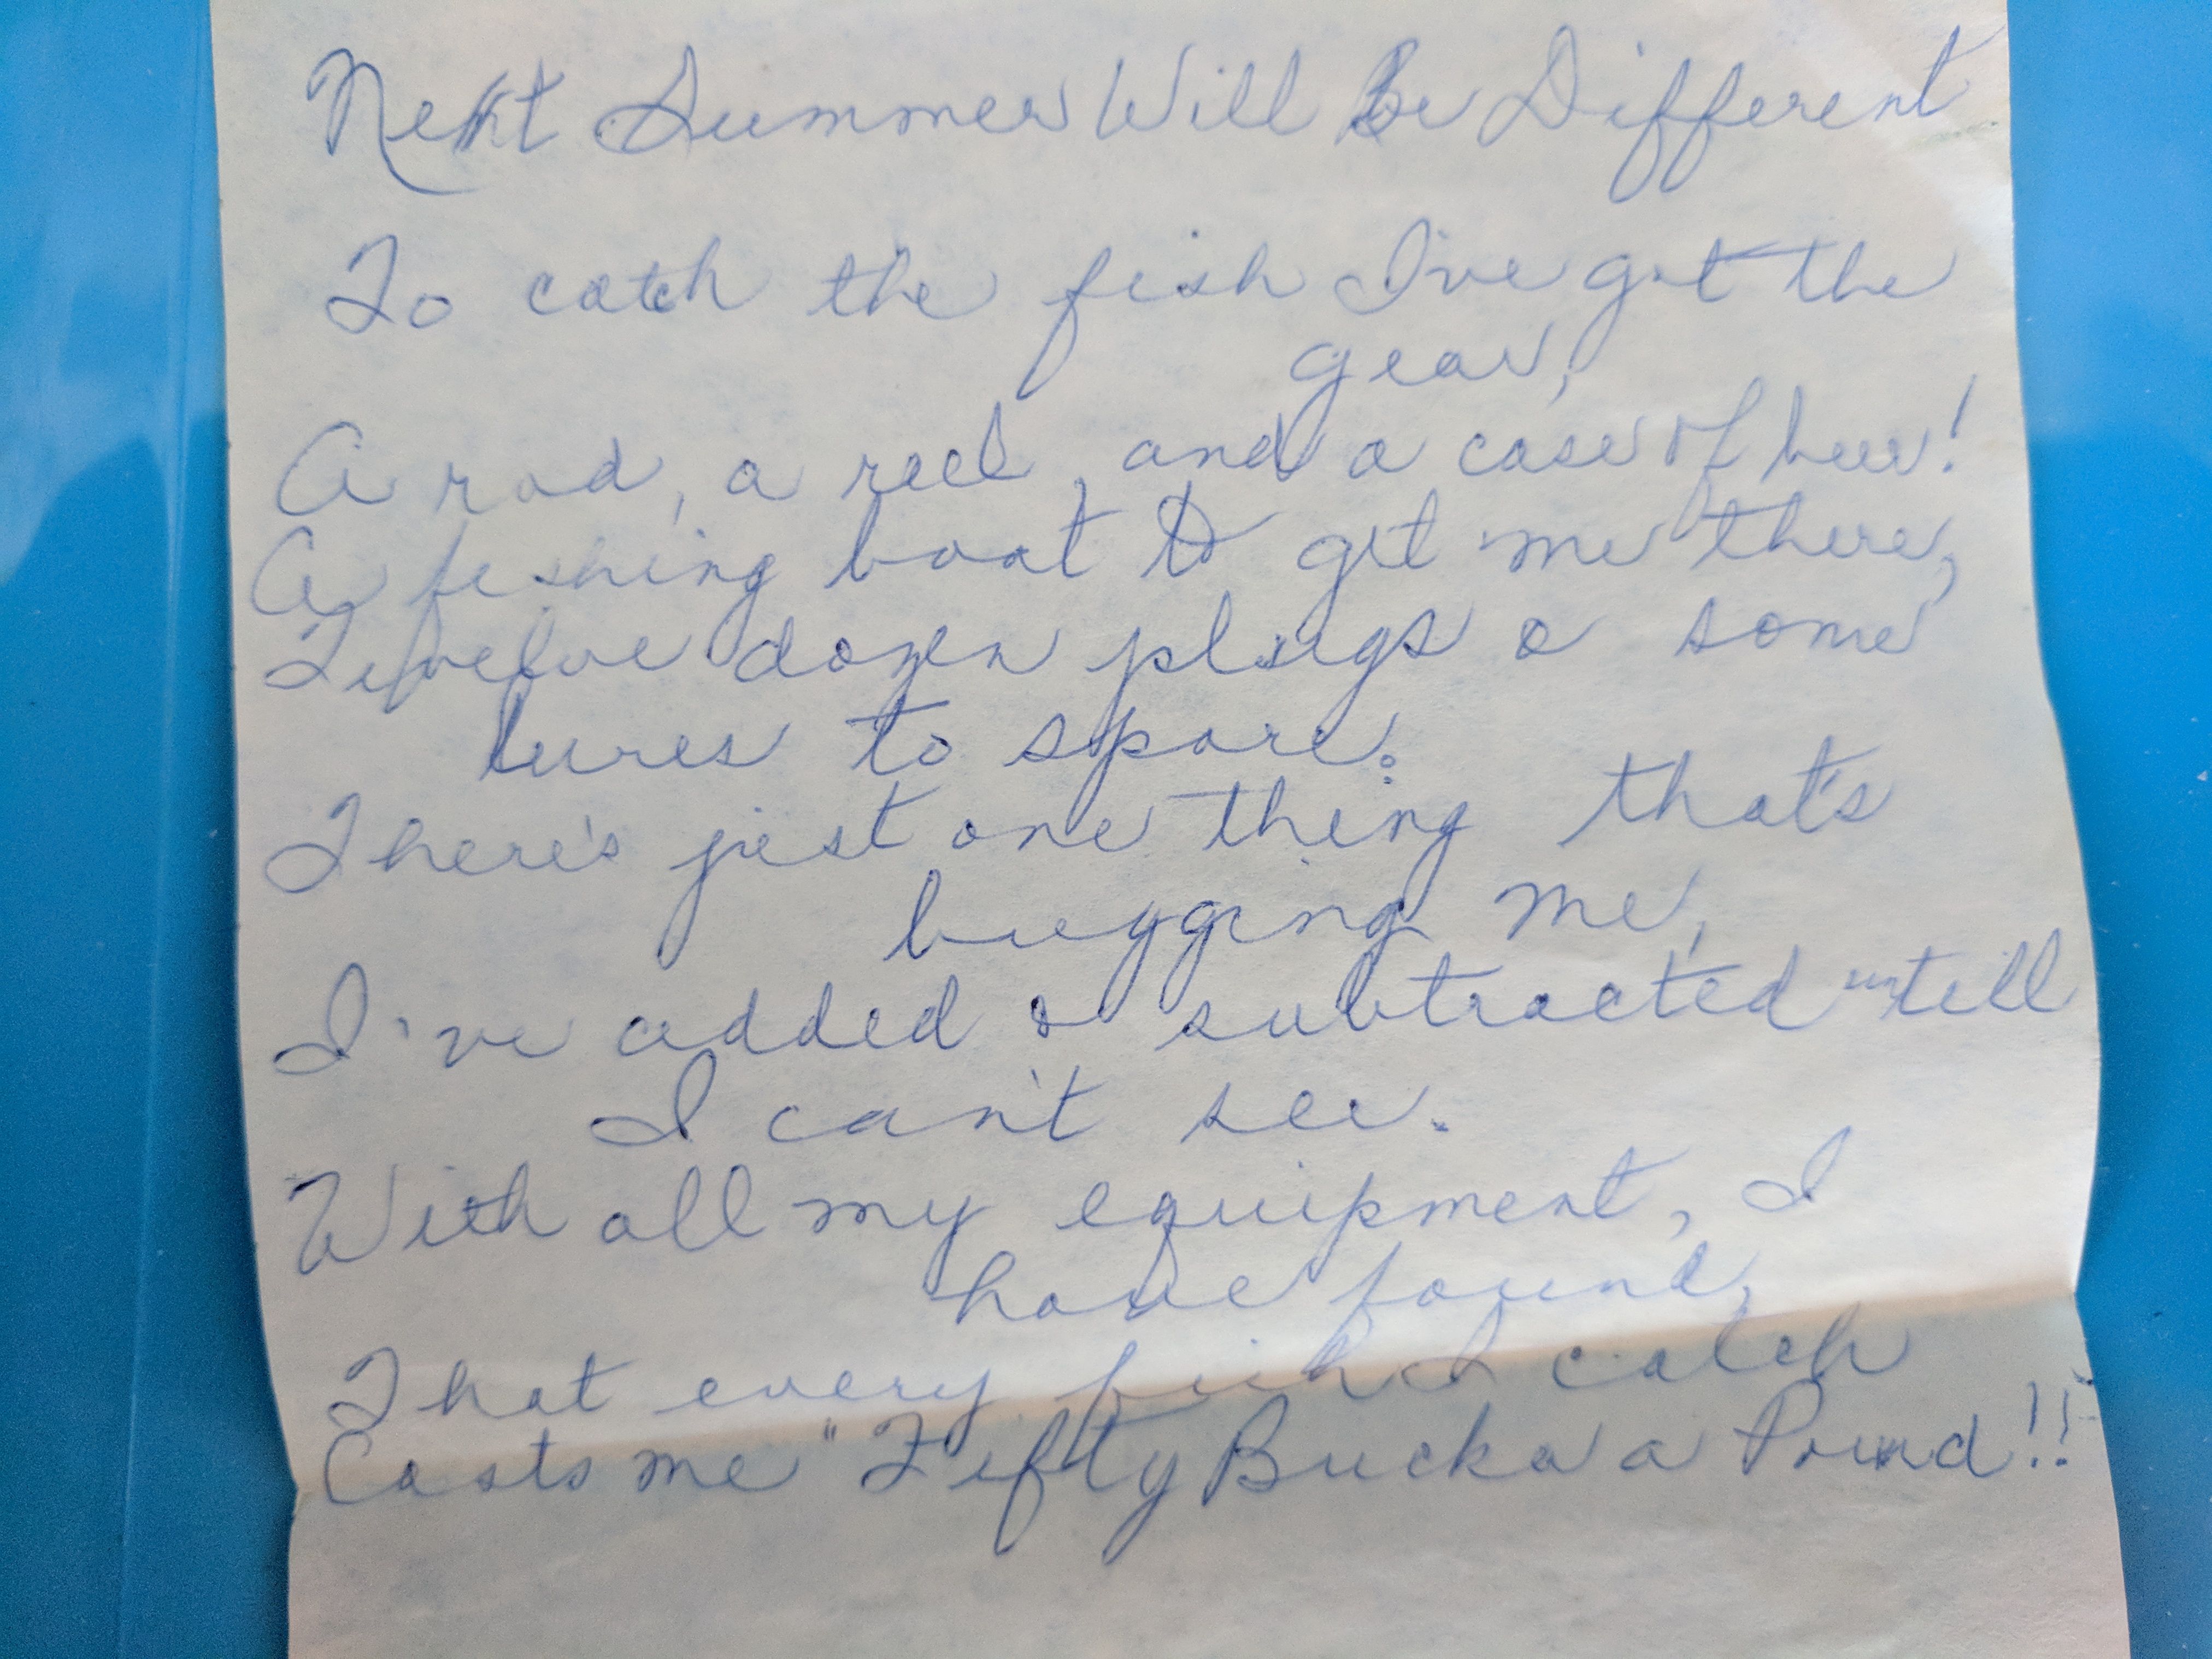 Next Summer Will Be Different
To catch the fish I've got the
gear,
A rod, a reel, and a case of beer!
A fishing boat to get me there,
Twelve dozen plugs & some
lures to spare.
There's just one thing that's
bugging me,
I've added & subtracted untill
I can't see.
With all my equipment, I
have found,
That every fish I catch
Costs me "Fifty Bucks a Pound!!